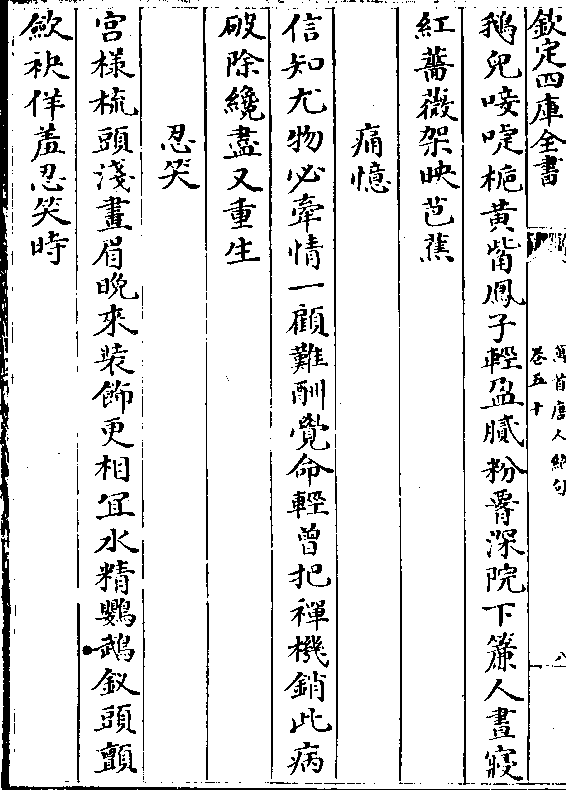 欽定四庫全書
萬首唐人絕句
卷五十
八
鵝兒唼啑梔黃觜鳳子輕盈膩粉腰深院下簾人晝寢
紅薔薇架映芭蕉
痛憶
信知尤物必牽情一顧難酬覺命輕曾把禪機銷此病
破除纔盡又重生
忍笑
宮樣梳頭淺畫眉晚來裝飾更相宜水精鸚鵡釵頭顫
歛袂佯羞忍笑時